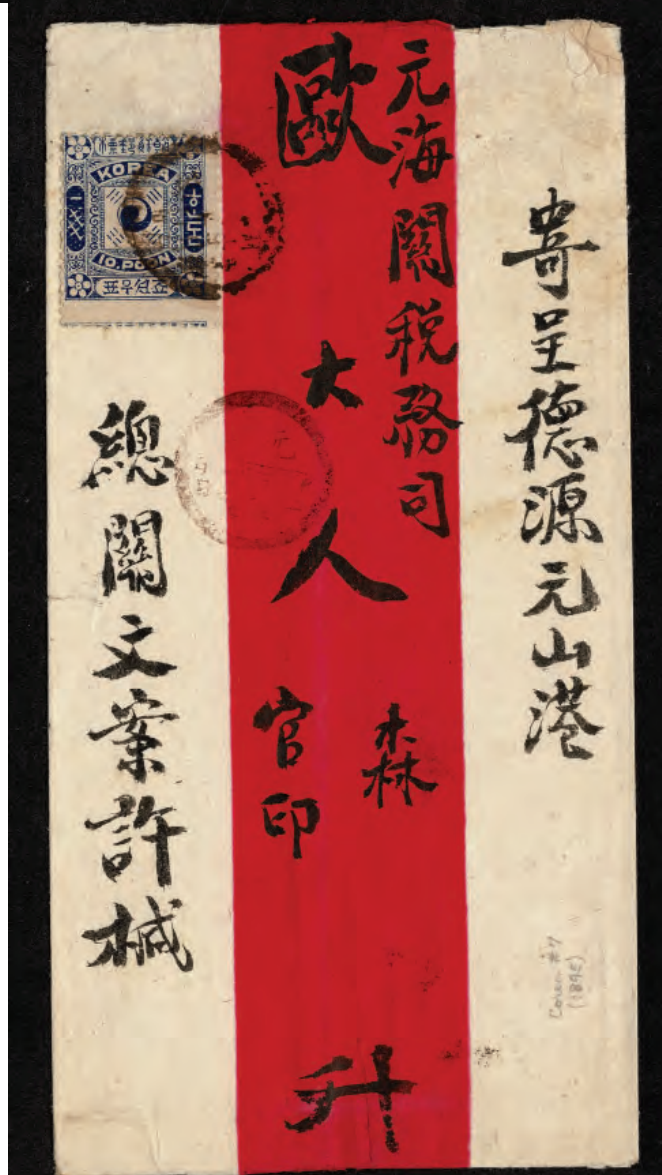 寄呈德源元山港
元海關稅務司
歐大人
森
官印
升
總關文案許椷
KOREA
10.POON
Corea #7
(1895)